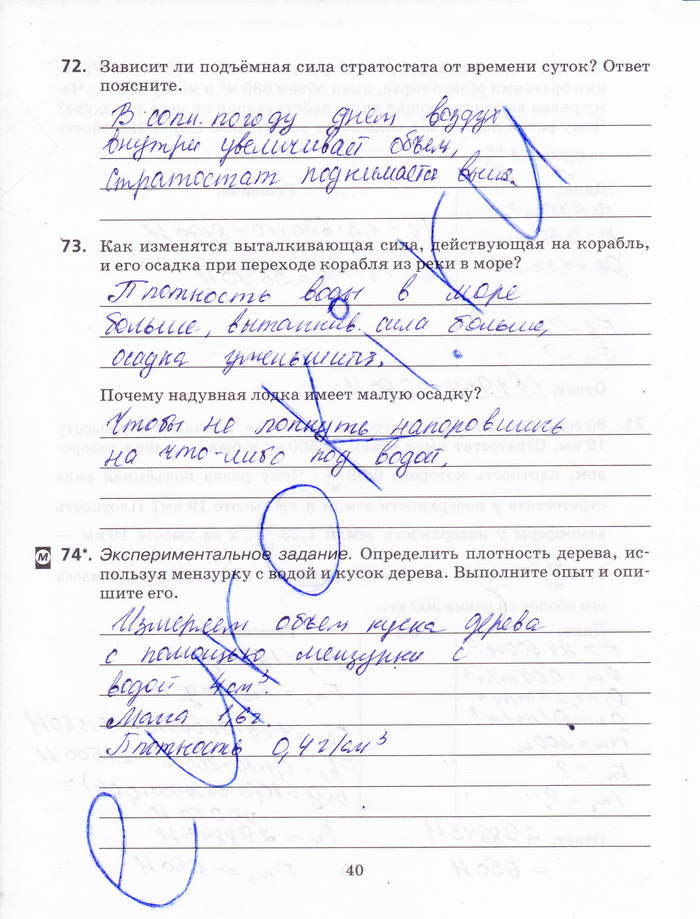 72. Зависит ли подъёмная сила стратостата от времени суток? Ответ
поясните.
В солн. погоду днем воздух
внутри увеличивает объем,
стратостат поднимается
73. Как изменятся выталкивающая сила, действующая на корабль,
и его осадка при переходе корабля из реки в море?
Плотность воды в море
больше, выталкив. сила больше,
осадка уменьшит.
Почему надувная лодка имеет малую осадку?
Чтобы не лопнуть, напоровшись
на что-либо под водой.
М 74*. Экспериментальное задание. Определить плотность дерева, ис-
пользуя мензурку с водой и кусок дерева. Выполните опыт и опи-
шите его.
Измеряем объем куска дерева
с помощью мензурки с
водой 4 см³.
Масса 1,6 г.
Плотность 0,4 г/см³
40